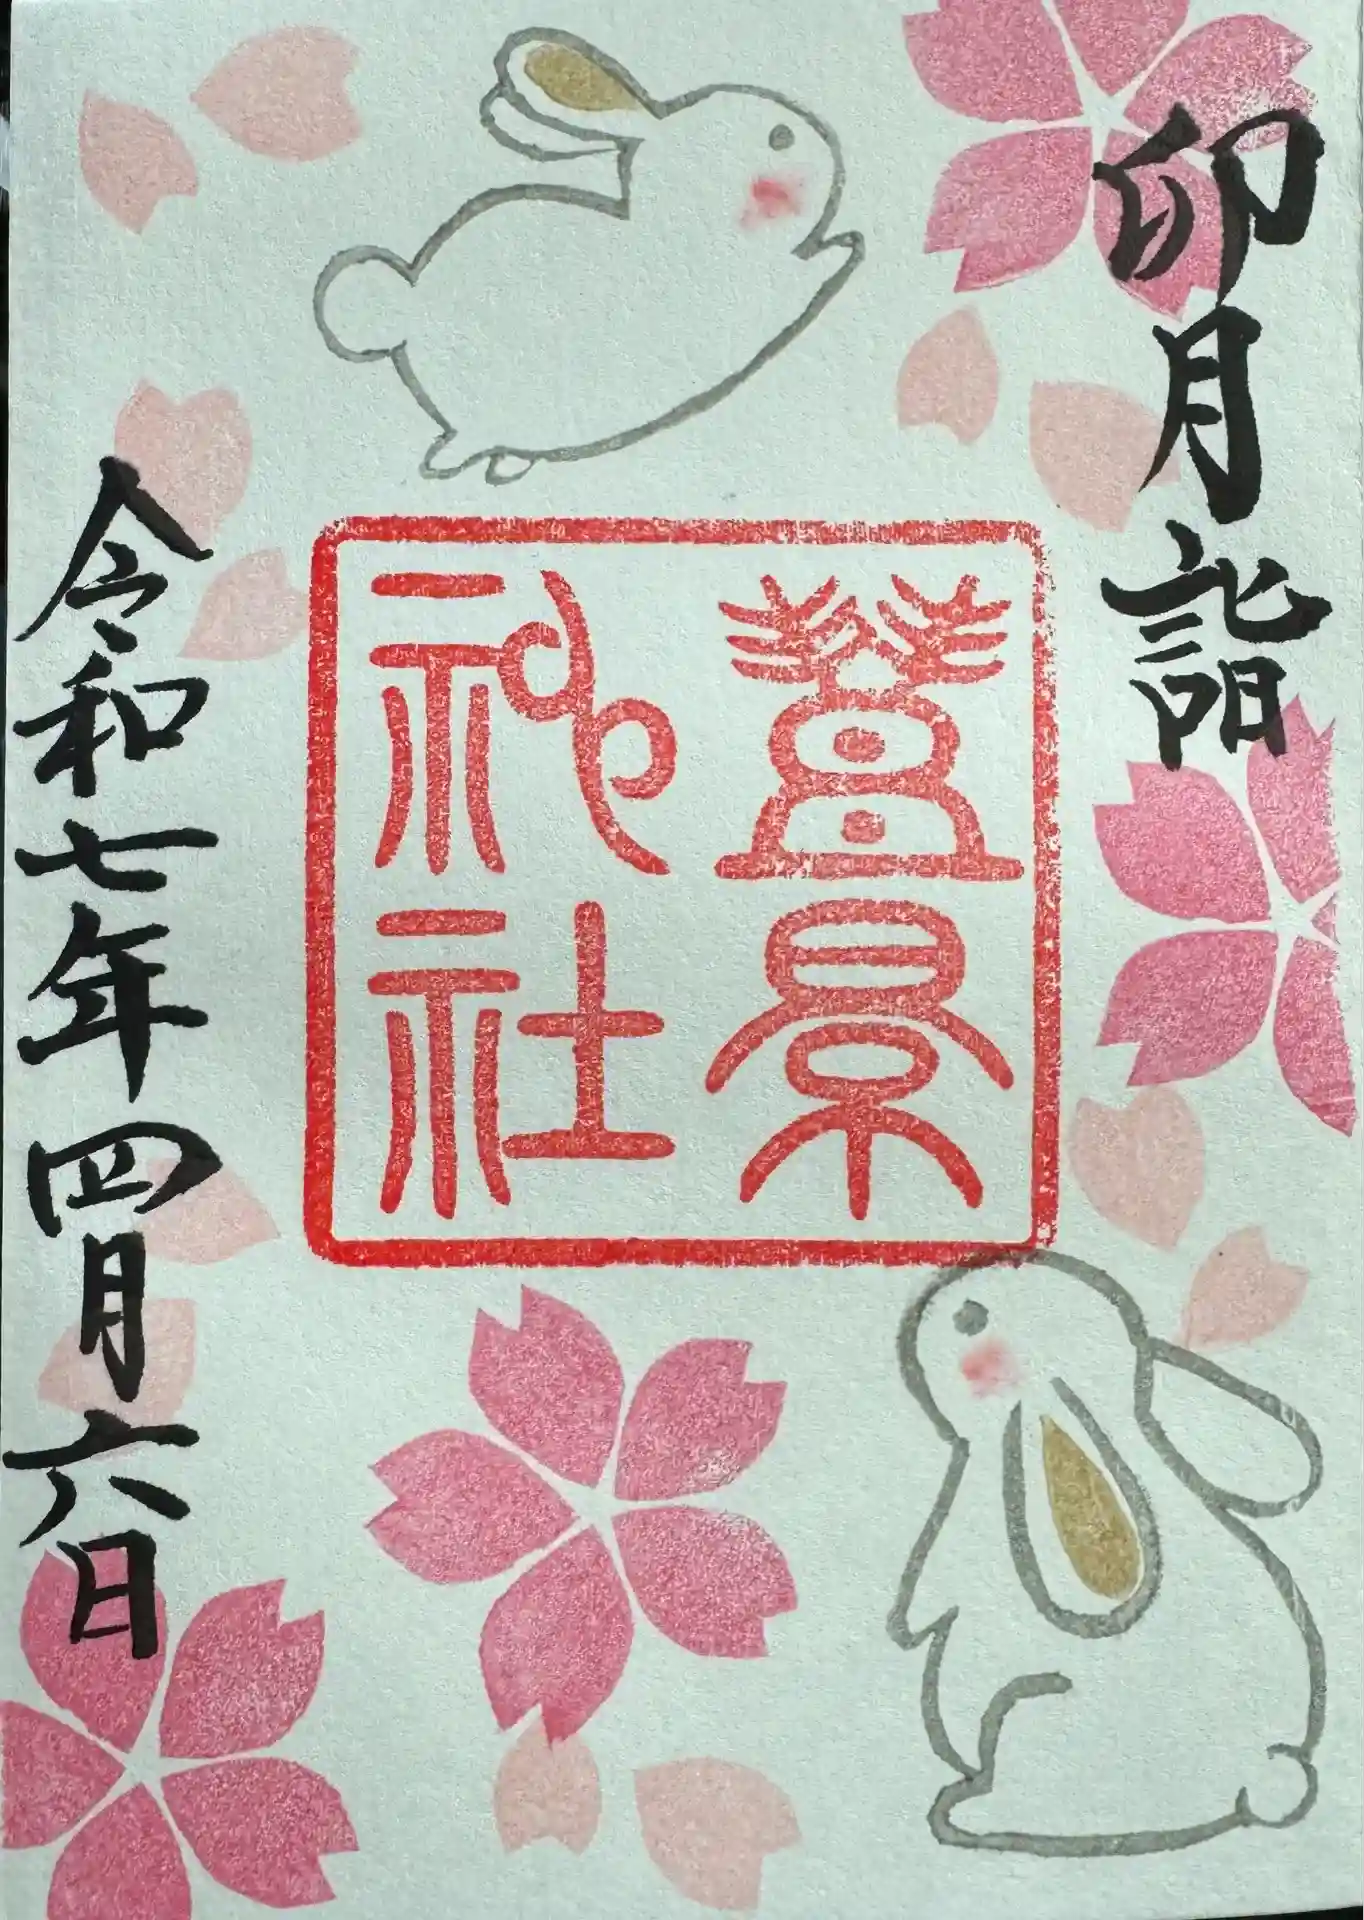 卯月詣
豊景
神社
令和七年四月六日